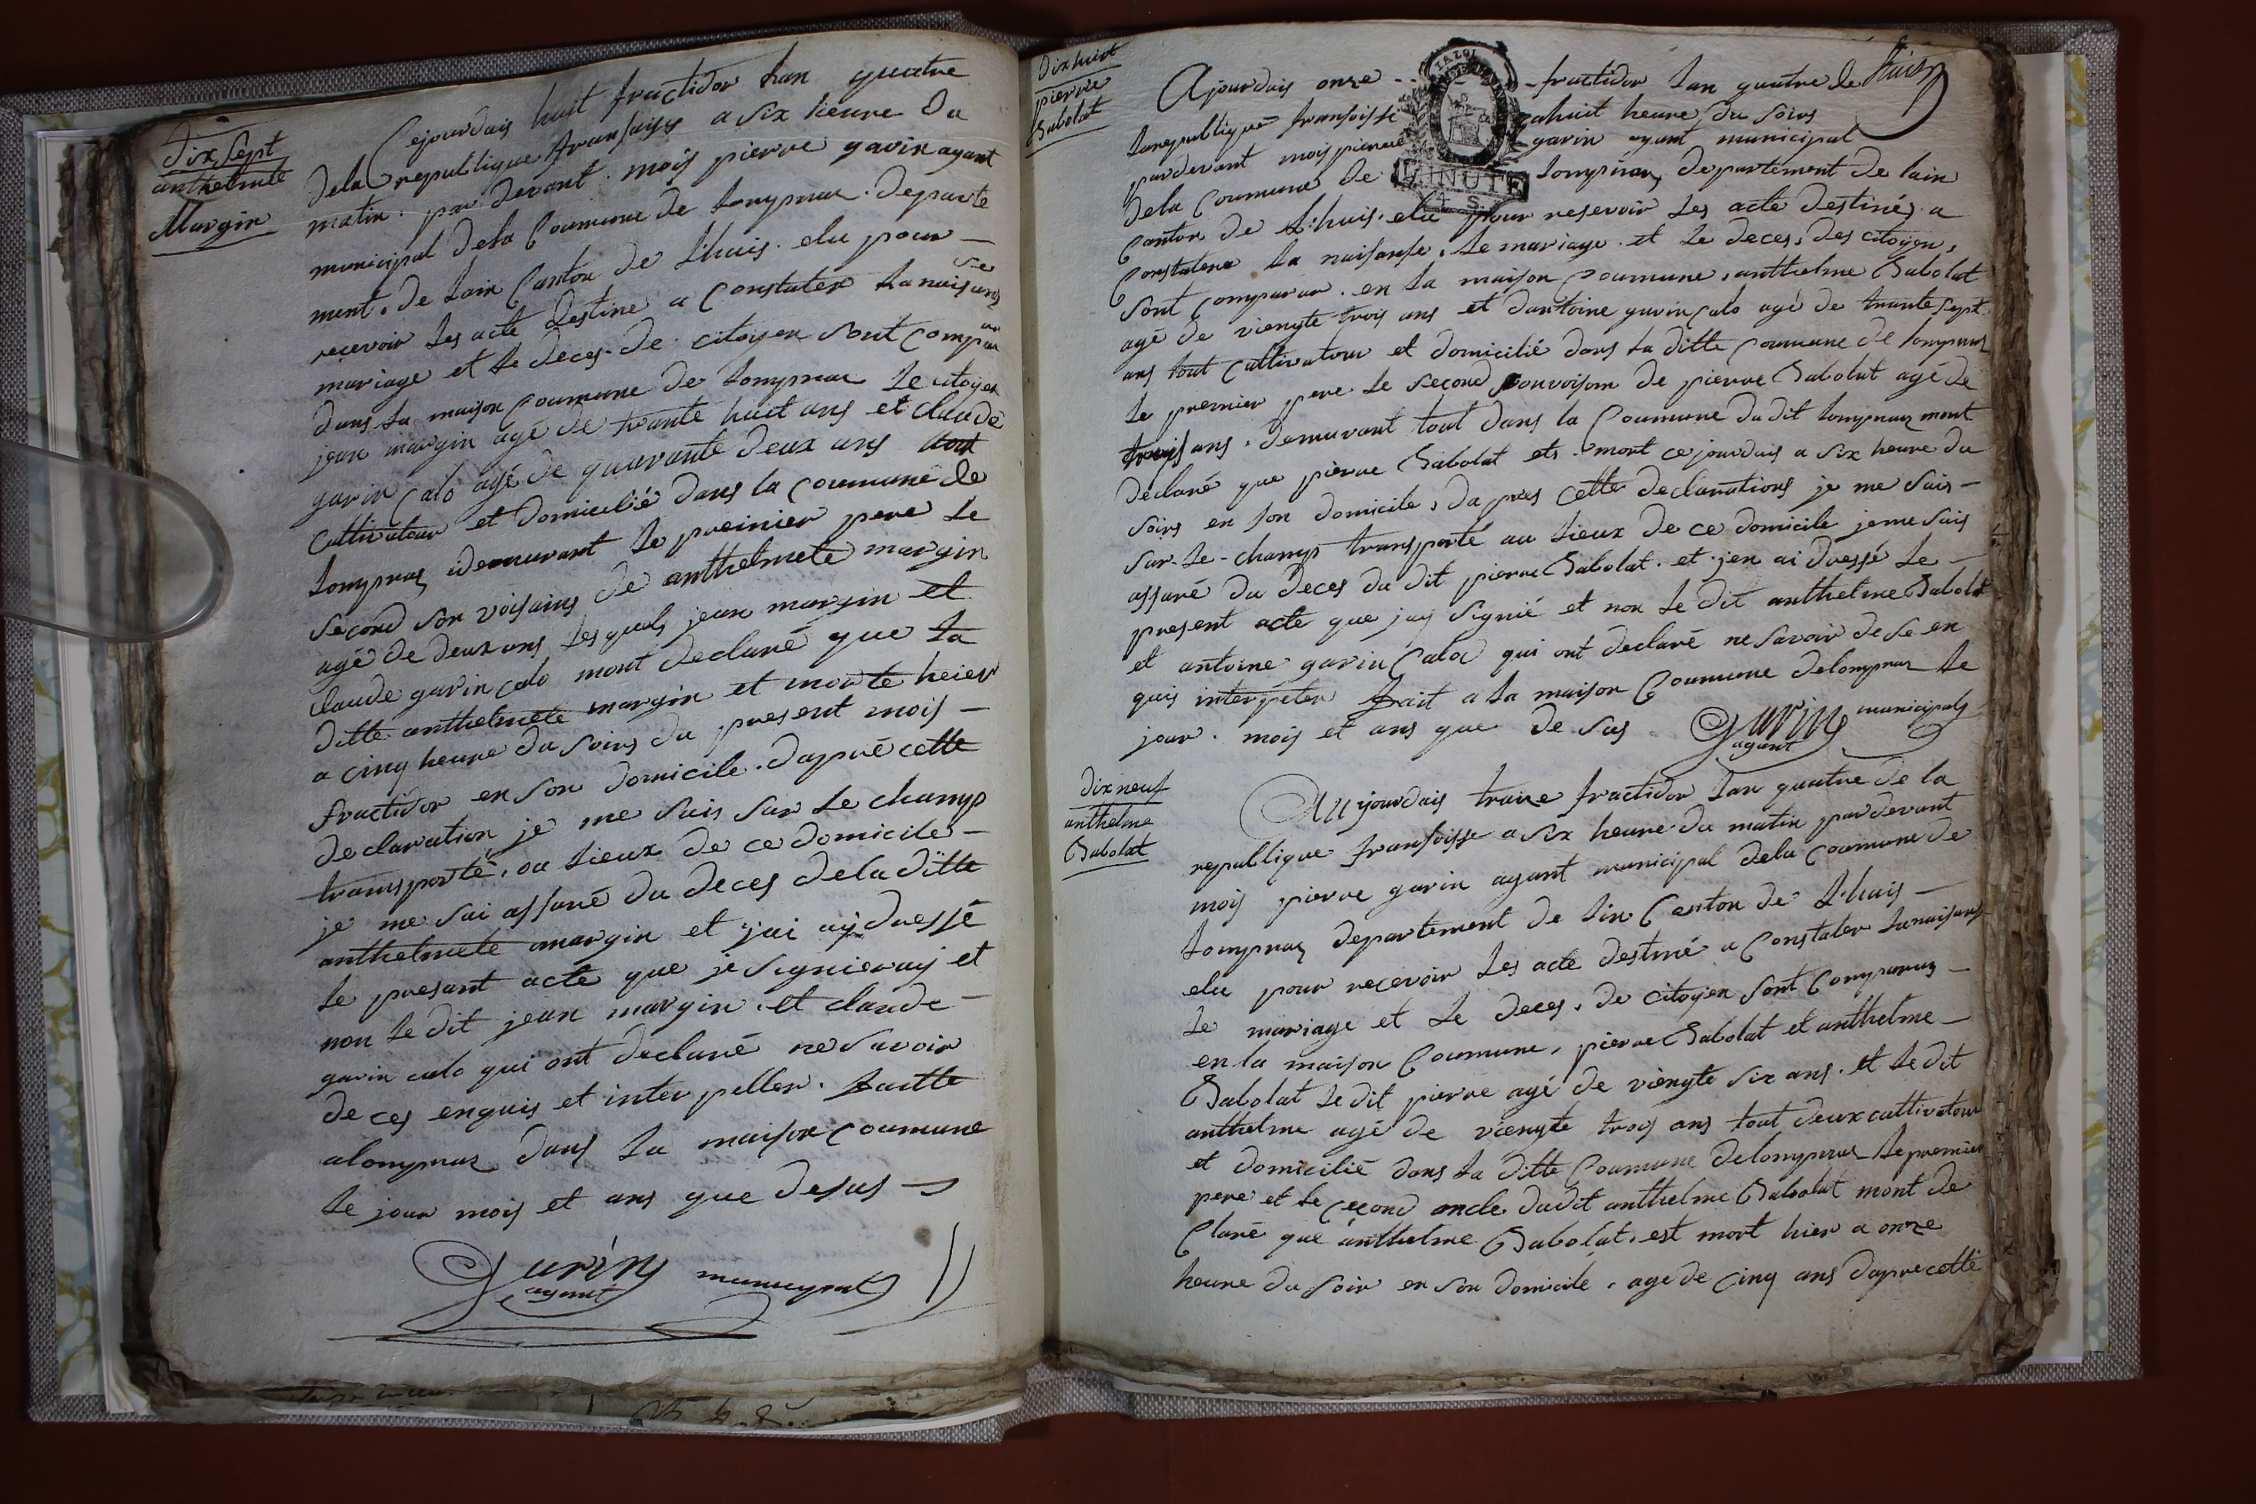 dix sept
anthelmete
Margin
Cejourduis huit fructidor lan quatre
dela republique fransaisse a six heure du
matin. par devant. mois pierre gavin agant
municipal dela Coumune de lompnas. departe
ment. de lain Canton de Lhuis. elu pour
recevoir les acte destine a Constater la naisanse
mariage et le deces. de. citoyen sont comparu
dans la maison coumune de lompnas le citoyen
jean margin agé de trante huit ans et claude
gavin calo agé de quarante deux ans tout
cultivateur et domicilié dans la coumune de
lompnas demurant le preinier pere le
second son voisains de anthelmete margin
agé de deux ans lesquels jean margin et
claude gavin calo mont declaré que la
ditte anthelmete margin et morte heier
a cinq heure du soirs du present mois
fructidor en son domicile. dapré cette
declaration je me suis sur le champ
transporté. au lieux de ce domicile
je me sui assuré du deces dela ditte
anthelmete margin et jai aij dressé
le presant acte que je signieraij et
non le dit jean margin. et claude
gavin calo qui ont declaré ne savoir
de ces enquis et interpeller. faitte
alompnas dans la maison coumune
le jour mois et ans que desus
Gavin agant municipal
dixhuit
pierre
Babolat
Ajourduis onze fructidor lan quatre de
larepublique fransoisse ahuit heure du soirs
pardevant mois pierre gavin agant municipal
dela Coumune de lompnas departement de lain
Canton de Lhuis. elu pour reservoir les acte destinés. a
Constatere la naisanse, le mariage. et le deces, des citoyen,
sont comparau. en la maison coumune, anthelme Babolat
agé de viengte trois ans et dantoine gavin calo agé de trante sept
ans tout cultivateur et domicilié dans la ditte coumune de lompnas
le premier pere le second pouvoisom de pierre Babolat agé de
trois ans. demurant tout dans la Coumune du dit lompnas mont
déclaré que pierre Babolat ets. mort cejourduis a six heure du
soirs en son domicile, da pres cette declarations je me suis
sur-le-champs transporté au lieux de ce domicile jeme suis
assuré du deces du dit pierre Babolat. et jen ai dressé le
present acte que jaij signié et non le dit anthelme Babolat
et antoine gavin Calo qui ont declaré ne savoir de se en
quis interpeter fait a la maison Coumune delompnas le
jour. mois et ans que de sus
Gavin agant municipal
dix neuf
anthelme
Babolat
Aujourduis traize fructidor lan quatre de la
republique fransoisse a six heure du matin pardevant
mois pierre gavin agant municipal dela coumune de
lompnas departement de lin Canton de Lhuis
elu pour recevoir les acte destiné a Constater lanaisanse
le mariage et le deces, de citoyen sont comparus
en la maison coumune, pierre Babolat et anthelme
Babolat le dit pierre agé de viengte six ans. et le dit
anthelme agé de viengte trois ans tout deux cultivateur
et domicilié dans la ditte Coumune delompnas le premier
pere et le cecond oncle du dit anthelme Babolat mont de
claré que anthelme Babolat, est mort hier a onze
heure du soir en son domicile, age de cinq ans dapre cette
LA LOI
MINUTE